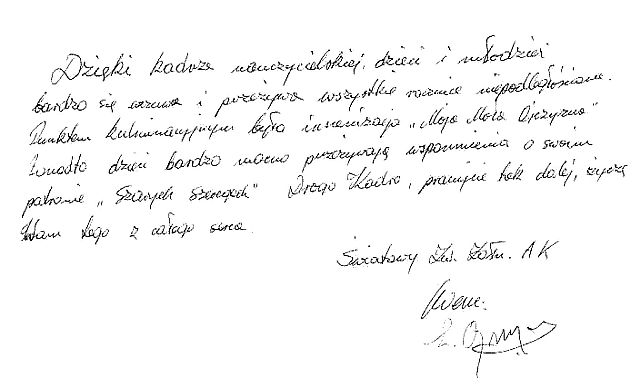 Dzięki kadrze nauczycielskiej, dzieci i młodzież
bardzo się wzrusza i przeżywa wszystkie rocznice niepodległościowe.
Punktem kulminacyjnym była inscenizacja „Moja Mała Ojczyzna"
Ponadto dzieci bardzo mocno przeżywają wspomnienia o swoim
patronie „Szarych Szeregach" Droga Kadro, pracujcie tak dalej, życzę
Wam tego z całego serca.
Światowy Zw. Żołn. AK